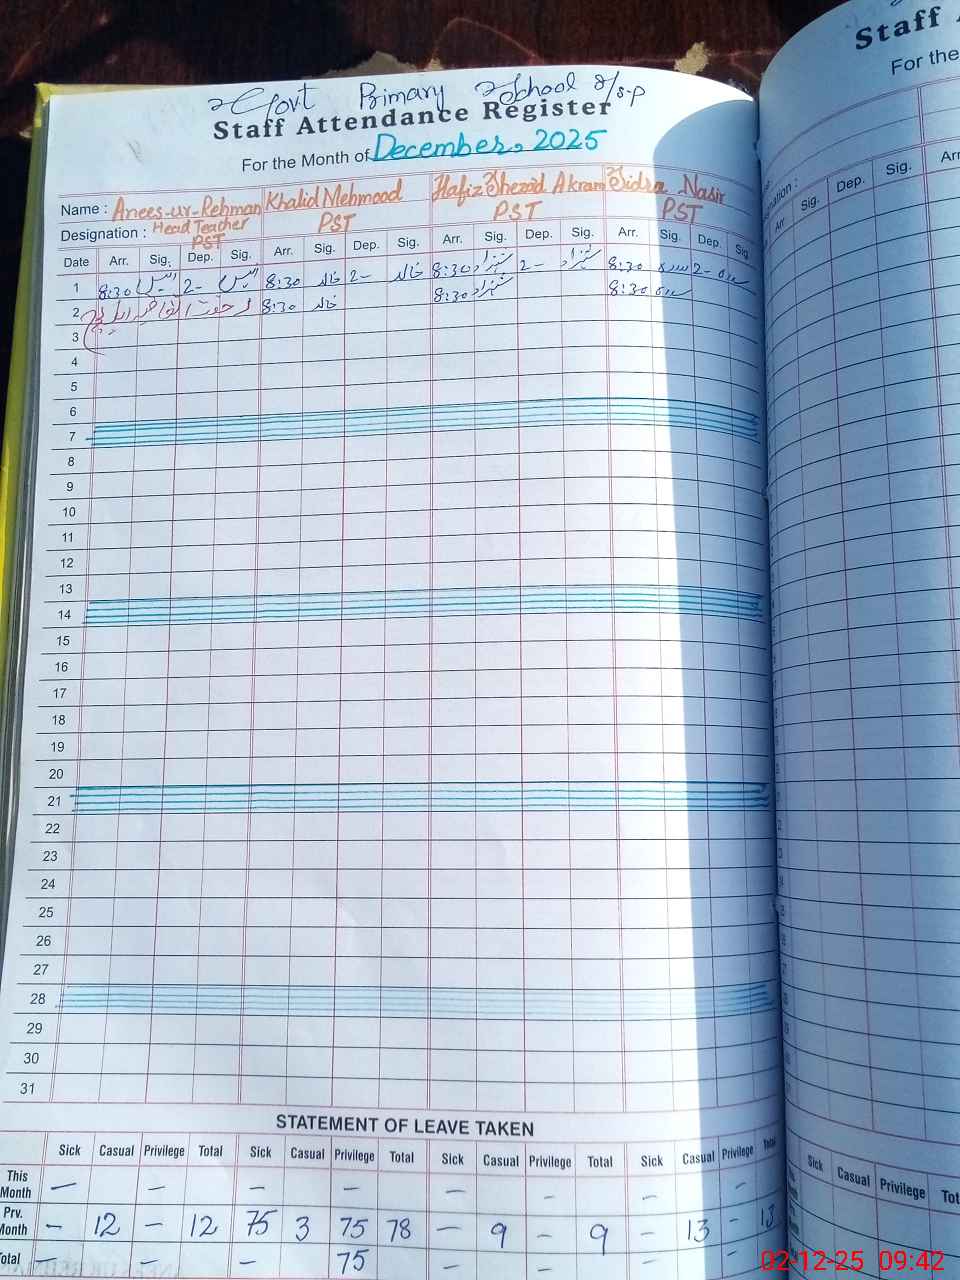 Govt Primary School
Staff Attendance Register
For the Month of December, 2025
Name : Anees-ur-Rehman Khalid Mehmood Hafiz Shezad Akram Sidra Nasir
Designation : Head Teacher PST PST PST PST
Date Arr. Sig. Dep. Sig. Arr. Sig. Dep. Sig. Arr. Sig. Dep. Sig. Arr. Sig. Dep. Sig.
1 8:30 انیس 2- انیس 8:30 خالد 2- خالد 8:30 شہزاد 2- شہزاد 8:30 سدرہ 2- سدرہ
2 8:30 خالد 8:30 شہزاد 8:30 سدرہ
3
4
5
6
7
8
9
10
11
12
13
14
15
16
17
18
19
20
21
22
23
24
25
26
27
28
29
30
31
STATEMENT OF LEAVE TAKEN
Sick Casual Privilege Total Sick Casual Privilege Total Sick Casual Privilege Total Sick Casual Privilege Total
This Month — — — — — — — —
Prv. Month — 12 — 12 75 3 75 78 — 9 — 9 — 13 — 13
Total — — — 75 — — — —
Staff
For the
Arr. Sig. Dep. Sig. Arr
Sick Casual Privilege Tot
02-12-25 09:42